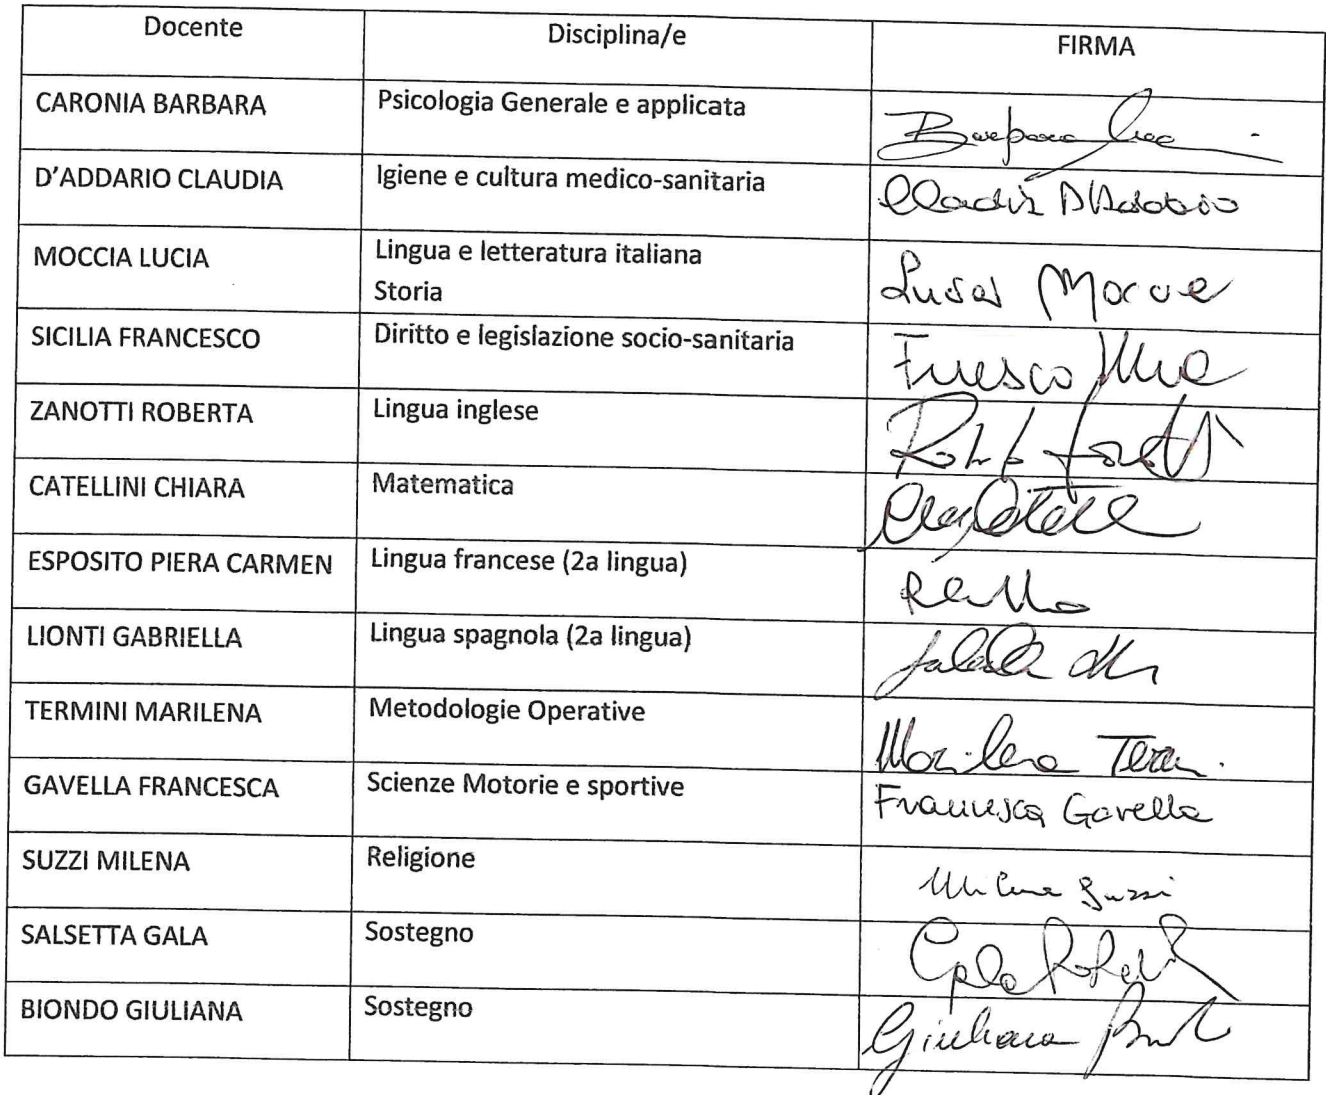 Docente Disciplina/e FIRMA
CARONIA BARBARA Psicologia Generale e applicata Barbara
D'ADDARIO CLAUDIA Igiene e cultura medico-sanitaria Claudia D'Addario
MOCCIA LUCIA Lingua e letteratura italiana
Storia Lucia Moccia
SICILIA FRANCESCO Diritto e legislazione socio-sanitaria
ZANOTTI ROBERTA Lingua inglese
CATELLINI CHIARA Matematica
ESPOSITO PIERA CARMEN Lingua francese (2a lingua)
LIONTI GABRIELLA Lingua spagnola (2a lingua)
TERMINI MARILENA Metodologie Operative Marilena
GAVELLA FRANCESCA Scienze Motorie e sportive Francesca Gavella
SUZZI MILENA Religione Milena Suzzi
SALSETTA GALA Sostegno Gala
BIONDO GIULIANA Sostegno Giuliana